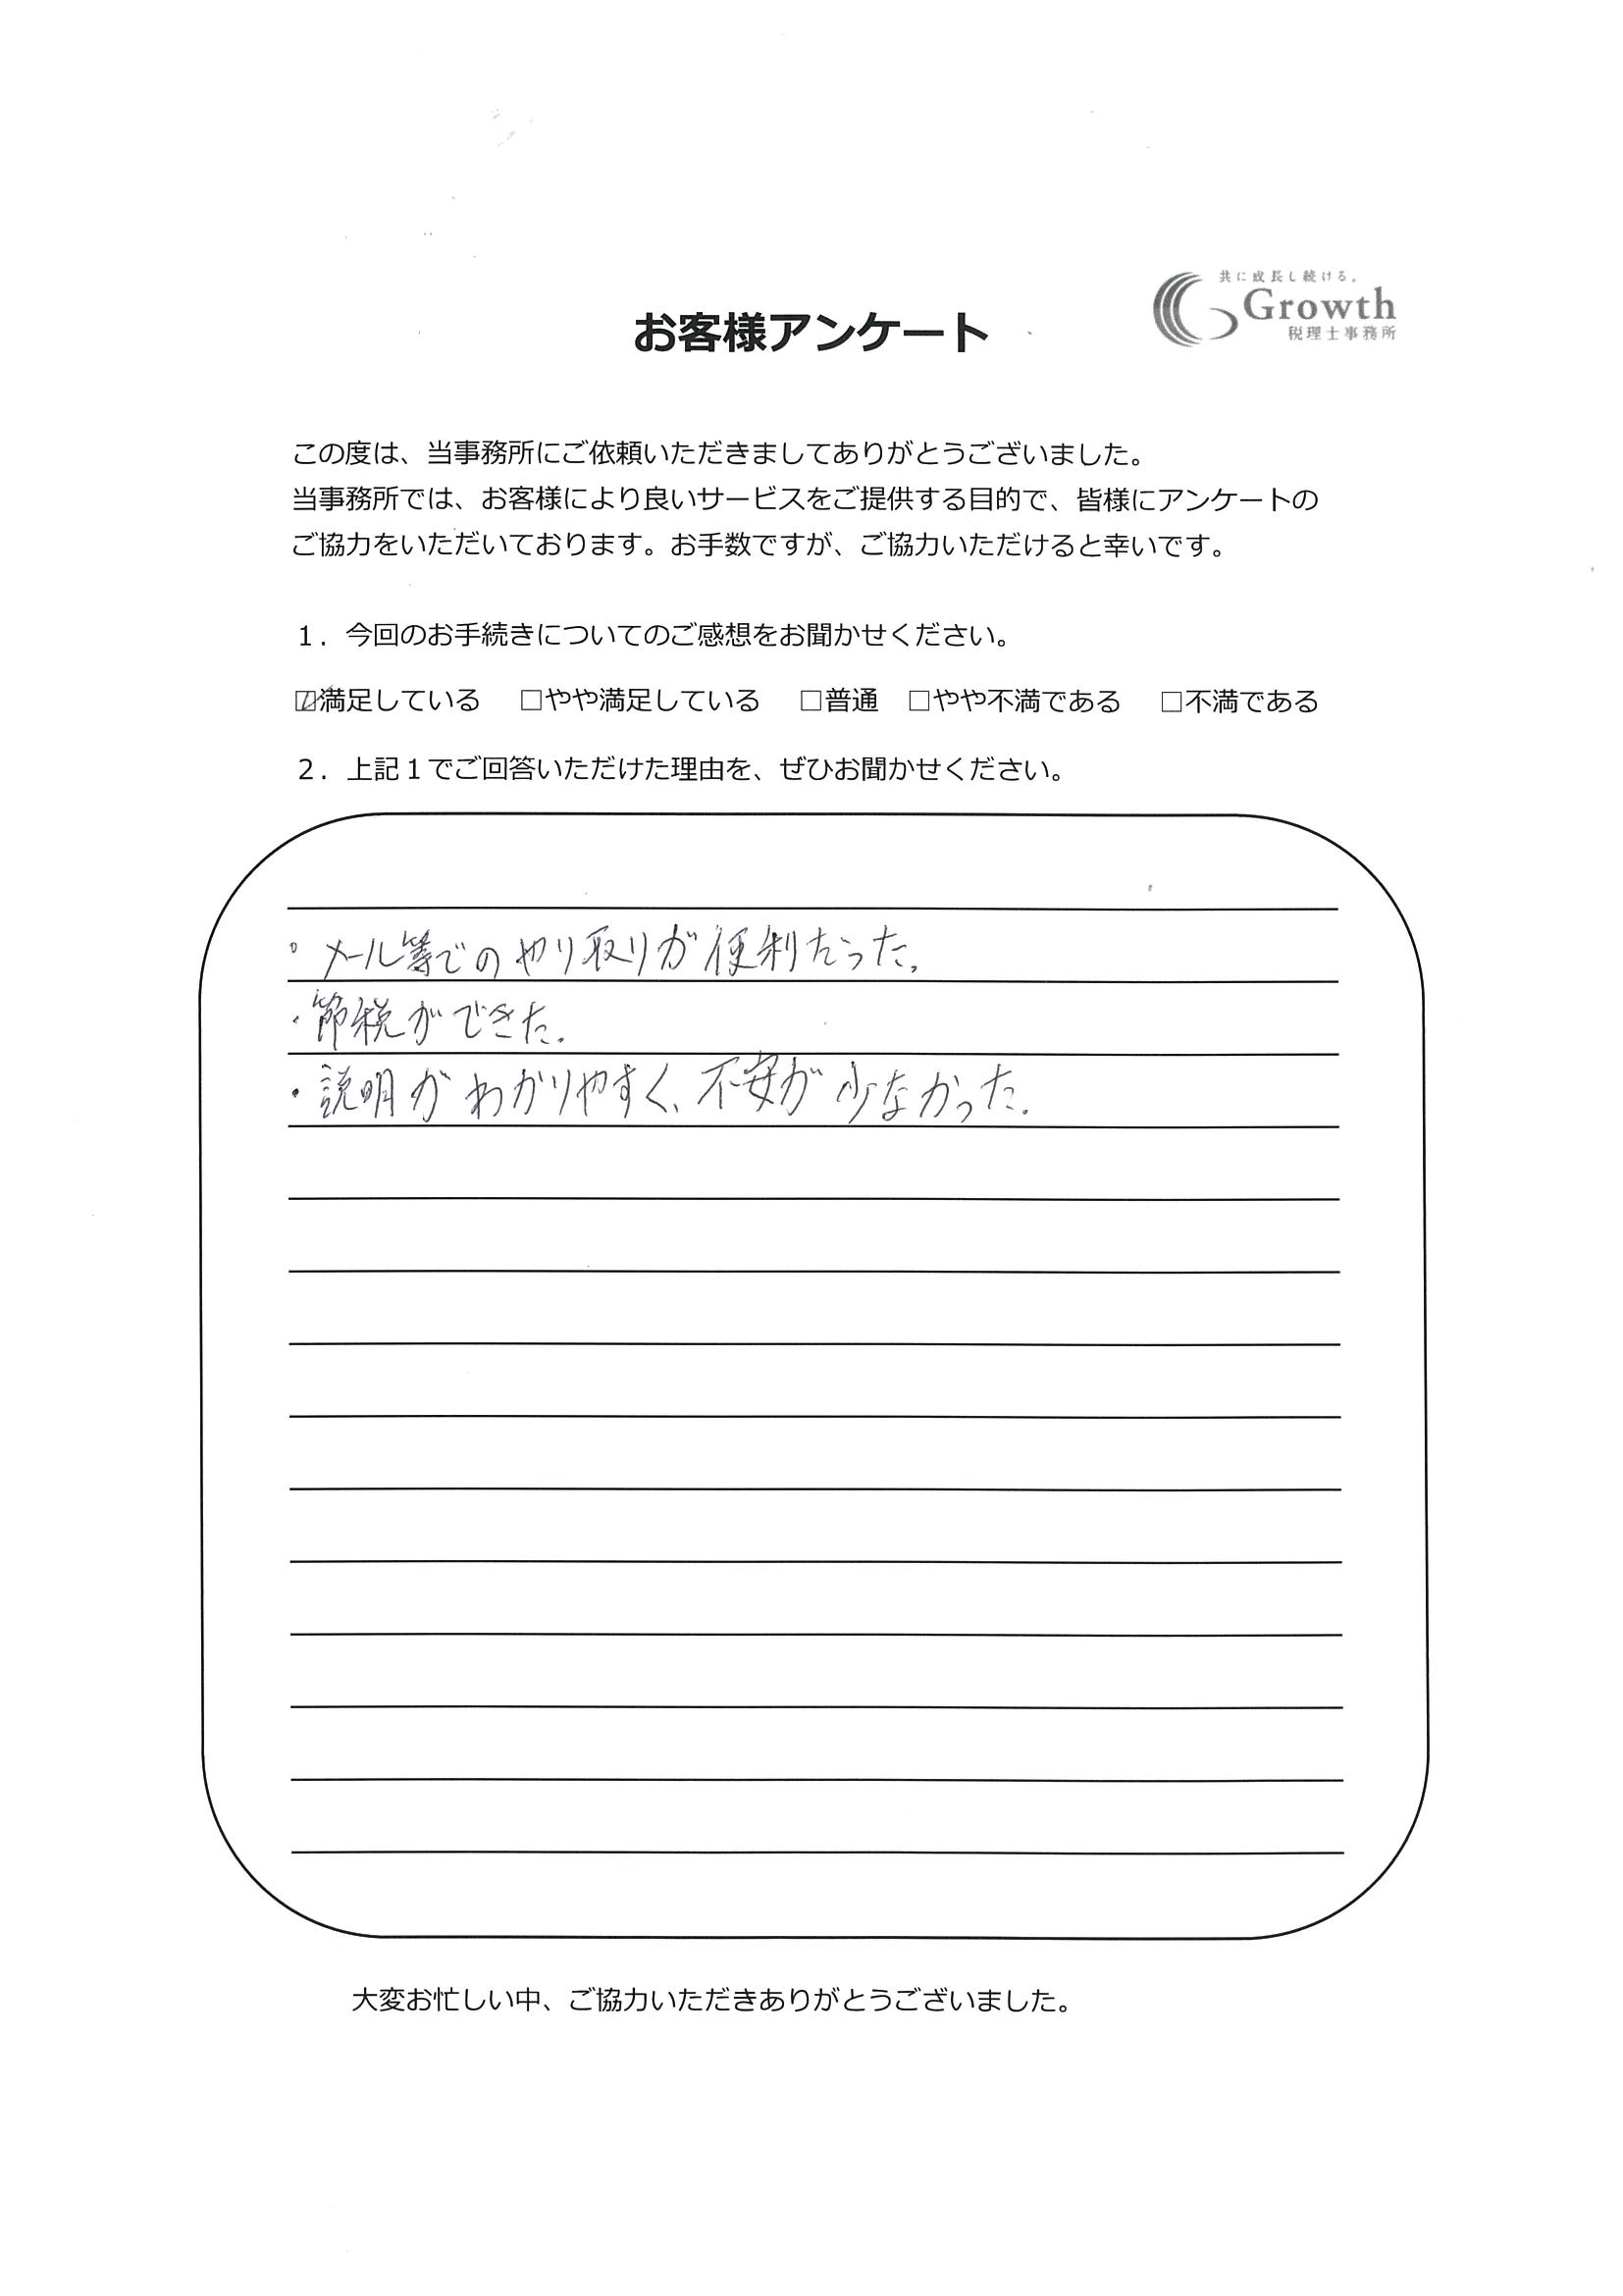 お客様アンケート
共に成長し続ける。
Growth
税理士事務所
この度は、当事務所にご依頼いただきましてありがとうございました。
当事務所では、お客様により良いサービスをご提供する目的で、皆様にアンケートの
ご協力をいただいております。お手数ですが、ご協力いただけると幸いです。
１．今回のお手続きについてのご感想をお聞かせください。
☑満足している　□やや満足している　□普通　□やや不満である　□不満である
２．上記１でご回答いただけた理由を、ぜひお聞かせください。
・メール等でのやり取りが便利だった。
・節税ができた。
・説明がわかりやすく、不安が少なかった。
大変お忙しい中、ご協力いただきありがとうございました。